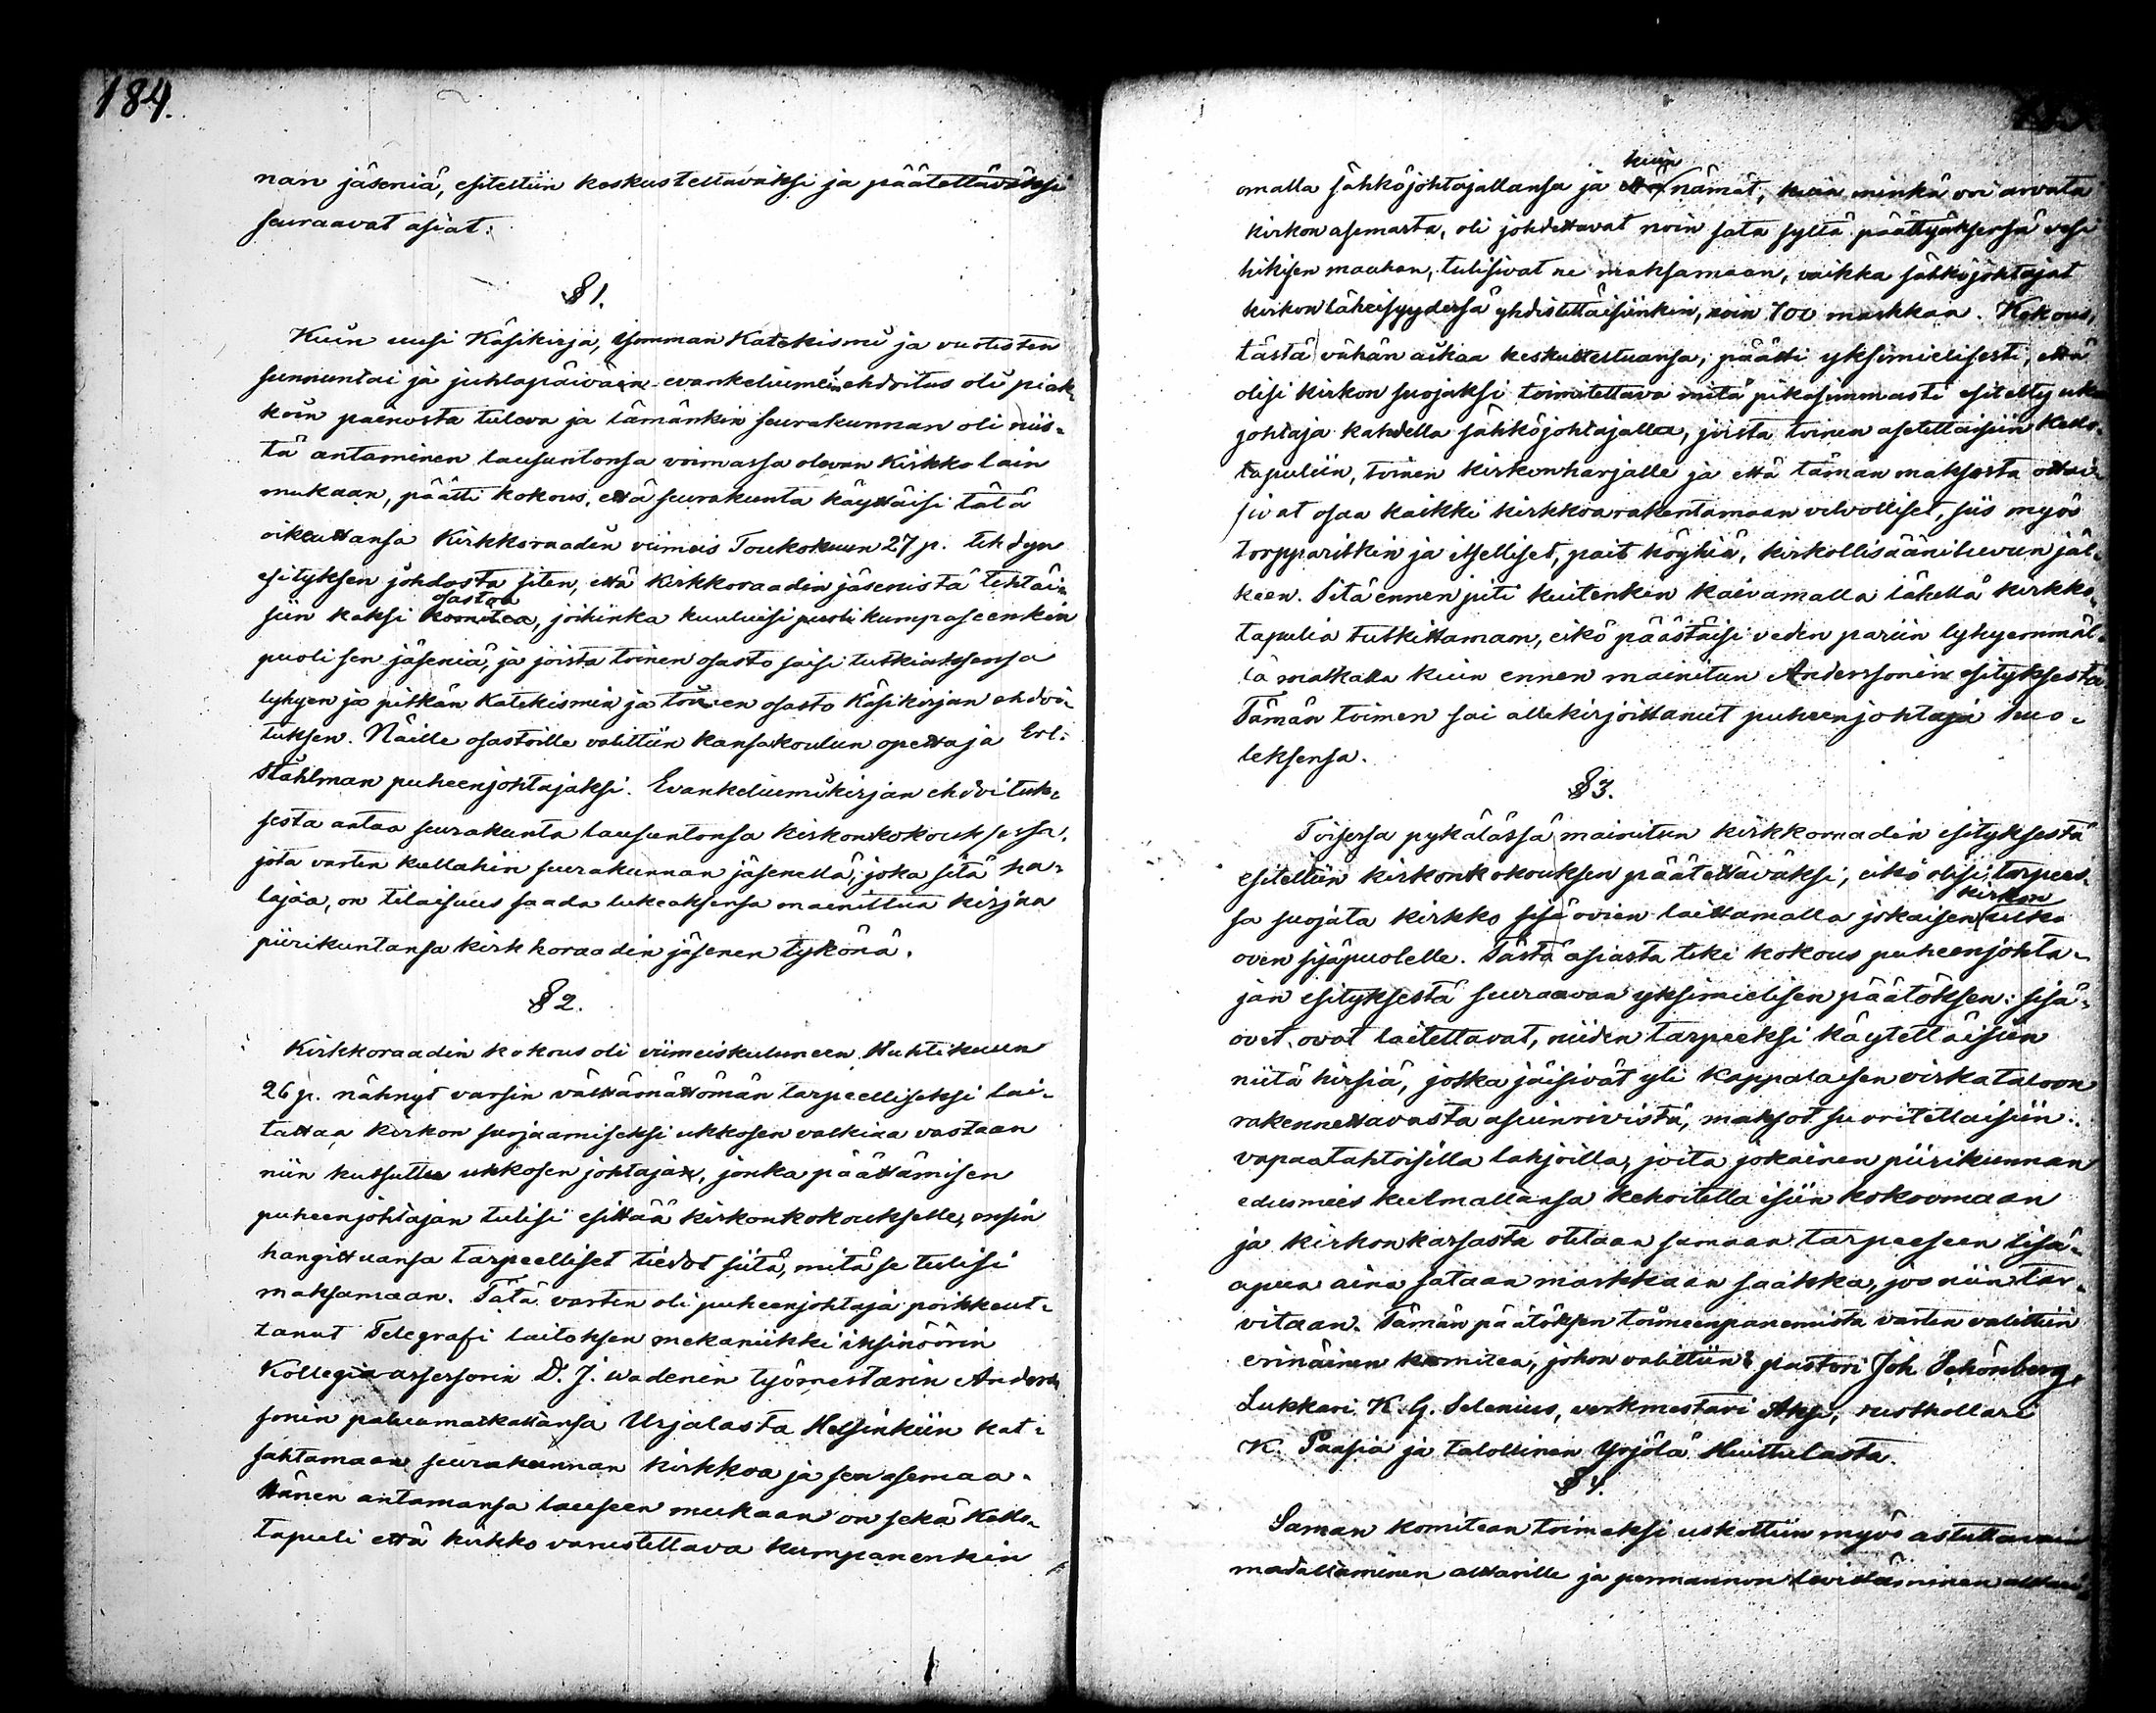 184.
nan jäseniä, esiteltiin keskusteltavaksi ja päätettäväksi
seuraavat asiat:
§ 1.
Kuin uusi Käsikirja, isomman Katekismi ja vuotisten
sunnuntai ja juhlapäiväin evankeliumein ehdoitus oli piak-
koin painosta tuleva ja tämänkin seurakunnan oli niis-
tä antaminen lausuntonsa voimassa olevan Kirkkolain
mukaan, päätti kokous, että seurakunta käyttäisi tätä
oikeuttansa Kirkkoraadin viimeis Toukokuun 27 p. tehdyn
esityksen johdosta siten, että Kirkkoraadin jäsenistä tehtäi-
siin kaksi osastoa, joihinka kuuluisi puoli kumpaseenkin
puoli sen jäseniä, ja joista toinen osasto saisi tutkiaksensa
lyhyen ja pitkän Katekismin ja toinen osasto Käsikirjan ehdoi-
tuksen. Näille osastoille valittiin kansakoulun opettaja Erl.
Ståhlman puheenjohtajaksi. Evankeliumikirjan ehdoituk-
sesta antaa seurakunta lausuntonsa Kirkonkokouksessa,
jota varten kullakin seurakunnan jäsenellä, joka sitä ha-
lajaa, on tilaisuus saada lukeaksensa mainittua kirjaa
piirikuntansa kirkkoraadin jäsenen tykönä.
§ 2.
Kirkkoraadin kokous oli viimeiskuluneen Huhtikuun
26 p. nähnyt varsin välttämättömän tarpeelliseksi lai-
tattaa kirkon suojaamiseksi ukkosen valkiaa vastaan
niin kutsuttu ukkosen johtajan, jonka päättämisen
puheenjohtajan tulisi esittää kirkonkokoukselle, ensin
hangittuansa tarpeelliset tiedot siitä, mitä se tulisi
maksamaan. Tätä varten oli puheenjohtaja poikkeut-
tanut Telegrafi laitoksen mekaniikki insinöörin
Kollegiaassessorin D. J. Wadenin työmestarin Anders-
sonin paluumatkallansa Urjalasta Helsinkiin kat-
sahtamaan seurakunnan kirkkoa ja sen asemaa.
Hänen antamansa lauseen mukaan on sekä Kello-
tapuli että kirkko varustettava kumpanenkin
omalla sähköjohtajallansa ja kuin nämät, kuin minkä voi arvata
kirkon asemasta, oli johdettavat noin sata syltä päättyäksensä vesi
hikisen maahan, tulisivat ne maksamaan, vaikka sähköjohtajat
kirkon läheisyydessä yhdistettäisiinkin, noin 700 markkaa. Kokous,
tästä vähän aikaa keskusteltuansa, päätti yksimielisesti, että
olisi kirkon suojaksi toimitettava mitä pikasimmasti esitelty uk
johtaja kahdella sähköjohtajalla, joista toinen asetettaisiin Kello-
tapuliin, toinen kirkonharjalle ja että tämän maksosta ottai-
sivat osaa kaikki kirkkoa rakentamaan velvolliset, siis myös
torpparitkin ja itselliset, paitsi köyhiä, kirkollisääniluvun jäl-
keen. Sitä ennen piti kuitenkin kaivamalla lähellä kirkko-
tapulia tutkittaman, eikö päästäisi veden pariin lyhyemmäl-
lä matkalla kuin ennen mainitun Anderssonin esityksestä.
Tämän toimen sai allekirjoittanut puheenjohtaja huo-
leksensa.
§ 3.
Toisessa pykälässä mainitun kirkkoraadin esityksestä
esiteltiin kirkonkokouksen päätettäväksi, eikö olisi tarpees-
sa suojata kirkko sisä ovien laittamalla jokaisen kirkon ulko
oven sisäpuolelle. Tästä asiasta teki kokous puheenjohta-
jan esityksestä seuraavan yksimielisen päätöksen: sisä-
ovet ovat laitettavat, niiden tarpeeksi käytettäisiin
niitä hirsiä, jotka jäisivät yli Kappalaisen virkataloon
rakennettavasta asuinrivistä, maksot suoritettaisiin
vapaatahtoisilla lahjoilla, joita jokainen piirikunnan
edusmies kulmallansa kehoitettaisiin kokoomaan
ja kirkonkassasta otetaan samaan tarpeeseen lisä-
apua aina sataan markkaan saakka, jos niin tar-
vitaan. Tämän päätöksen toimeenpanemista varten valittiin
erinäinen komitea, johon valittiin pastori Joh. Schönberg,
Lukkari K. G. Selenius, verkmestari Aksi, rusthollari
K. Paasia ja talollinen Yrjölä Huittulasta.
§ 4.
Saman komitean toimeksi uskottiin myös astuttavain
madaltaminen alttarille ja permannon levittäminen alttari-